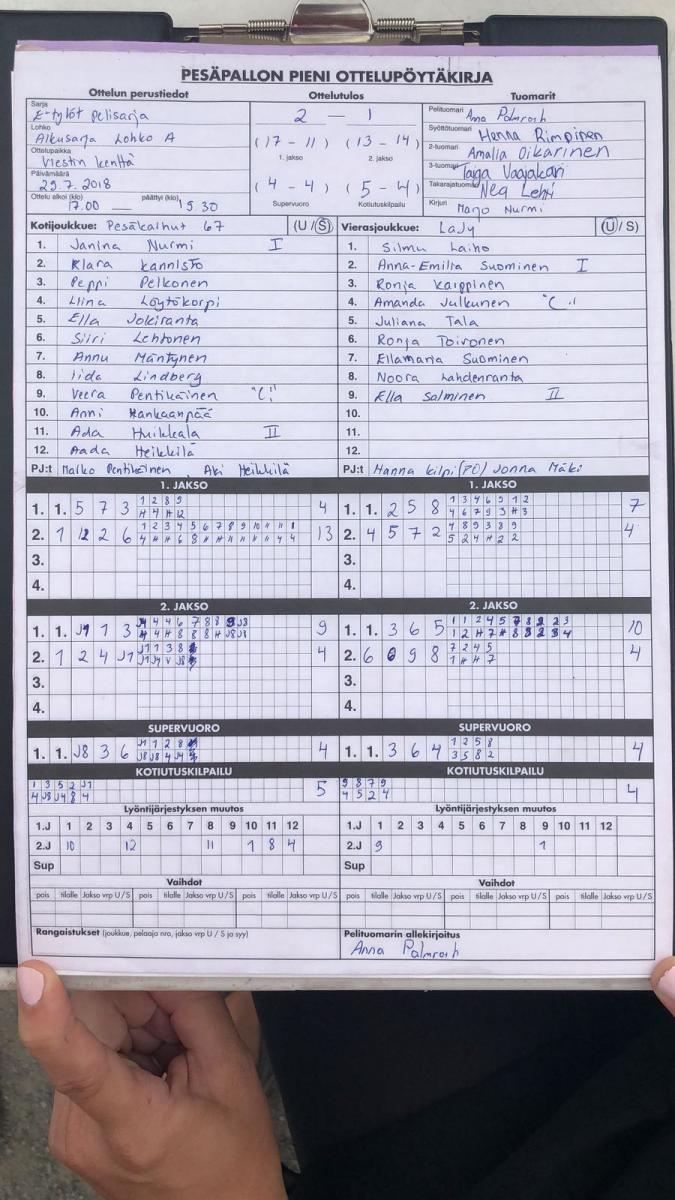 PESÄPALLON PIENI OTTELUPÖYTÄKIRJA
Ottelun perustiedot
Sarja
E-tytöt Pelisarja
Lohko
Alkusarja Lohko A
Ottelupaikka
Viestin kenttä
Päivämäärä
29.7.2018
Ottelu alkoi (klo) päättyi (klo)
17.00
Ottelutulos
2 — 1
(17 - 11) (13 - 14)
1. jakso 2. jakso
(4 - 4) (5 - 4)
Supervuoro Kotiutuskilpailu
Tuomarit
Pelituomari Anna Palmroth
Syöttötuomari Henna Rimpinen
2-tuomari Amalia Oikarinen
3-tuomari Taiga Vaajakari
Takarajatuomari Nea Lehti
Kirjuri Marjo Nurmi
Kotijoukkue: Pesäkarhut 67 (U/S)
1. Janina Nurmi I
2. Klara Kannisto
3. Peppi Pelkonen
4. Liina Löytökorpi
5. Ella Jokiranta
6. Siiri Lehtonen
7. Annu Mäntynen
8. Iida Lindberg
9. Veera Pentikäinen "C"
10. Anni Kankaanpää
11. Ada Huikkala II
12. Aada Heikkilä
PJ:t Marko Pentikäinen, Aki Heikkilä
Vierasjoukkue: LaJy (U/S)
1. Silmu Laiho
2. Anna-Emilia Suominen I
3. Ronja Karppinen
4. Amanda Julkunen "C"
5. Juliana Tala
6. Ronja Toivonen
7. Ellamaria Suominen
8. Noora Lahdenranta
9. Ella Salminen II
10.
11.
12.
PJ:t Hanna Kilpi (PO) Jonna Mäki
1. JAKSO
1. 1. 5 7 3 4
2. 1 12 2 6 13
3.
4.
1. JAKSO
1. 1. 2 5 8 7
2. 4 5 7 2 4
3.
4.
2. JAKSO
1. 1. J1 1 3 9
2. 1 2 4 J1 4
3.
4.
2. JAKSO
1. 1. 3 6 5 10
2. 6 9 8 4
3.
4.
SUPERVUORO
1. 1. J8 3 6 4
SUPERVUORO
1. 1. 3 6 4 1 2 5 8 4
3 5 8 2
KOTIUTUSKILPAILU
1 3 5 2 J1 5
4 J8 J4 8 4
KOTIUTUSKILPAILU
9 8 7 9 4
4 5 2 4
Lyöntijärjestyksen muutos
1.J 1 2 3 4 5 6 7 8 9 10 11 12
2.J 10 12 11 1 8 4
Sup
Lyöntijärjestyksen muutos
1.J 1 2 3 4 5 6 7 8 9 10 11 12
2.J 9 1
Sup
Vaihdot
pois tilalle Jakso vrp U/S pois tilalle Jakso vrp U/S pois tilalle Jakso vrp U/S
Vaihdot
pois tilalle Jakso vrp U/S pois tilalle Jakso vrp U/S pois tilalle Jakso vrp U/S
Rangaistukset (joukkue, pelaaja nro, jakso vrp U / S ja syy)
Pelituomarin allekirjoitus
Anna Palmroth